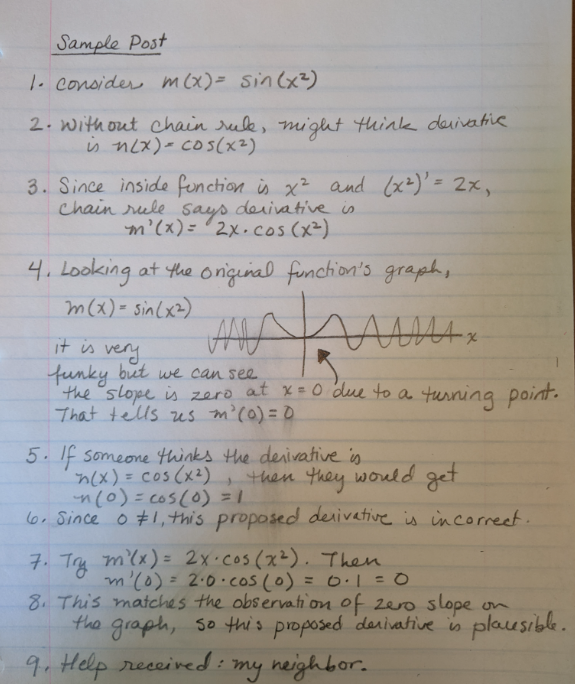 Sample Post
1. Consider m(x) = sin(x²)
2. Without chain rule, might think derivative
is n(x) = cos(x²)
3. Since inside function is x² and (x²)' = 2x,
chain rule says derivative is
m'(x) = 2x·cos(x²)
4. Looking at the original function's graph,
m(x) = sin(x²)
x
it is very
funky but we can see
the slope is zero at x=0 due to a turning point.
That tells us m'(0)=0
5. If someone thinks the derivative is
n(x) = cos(x²), then they would get
n(0) = cos(0) = 1
6. Since 0 ≠ 1, this proposed derivative is incorrect.
7. Try m'(x) = 2x·cos(x²). Then
m'(0) = 2·0·cos(0) = 0·1 = 0
8. This matches the observation of zero slope on
the graph, so this proposed derivative is plausible.
9. Help received: my neighbor.